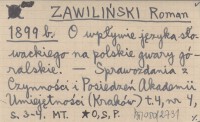 ZAWILIŃSKI Roman
1899 b. O wpływie języka sło-
wackiego na polskie gwary gó-
ralskie. — Sprawozdania z
Czynności i Posiedzeń (Akademii
Umiejętności (Kraków) t.4, nr 4,
s. 3-4. MT. *O,S,P.